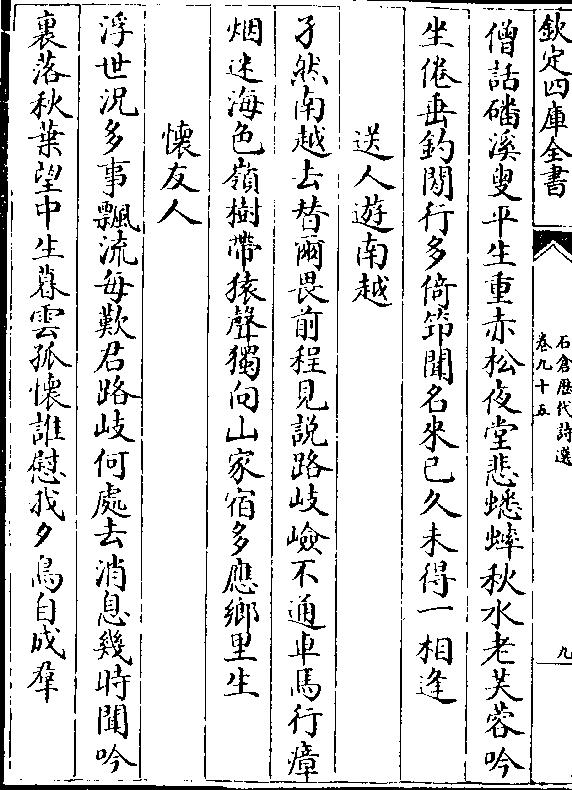 欽定四庫全書
石倉歷代詩選
卷九十五
九
僧話磻溪叟平生重赤松夜堂悲蟋蟀秋水老芙蓉吟
坐倦垂釣閒行多倚笻聞名來已久未得一相逢
送人遊南越
孑然南越去替爾畏前程見說路岐嶮不通車馬行瘴
烟迷海色嶺樹帶猿聲獨向山家宿多應鄉里生
懷友人
浮世况多事飄流每歎君路岐何處去消息幾時聞吟
裏落秋葉望中生暮雲孤懷誰慰我夕鳥自成羣